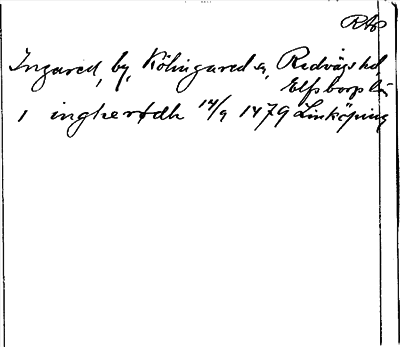 Ingared, by, Kölingared s, Redvägs hd,
Elfsborgs län
1 ingherødh 14/9 1479 Linköping